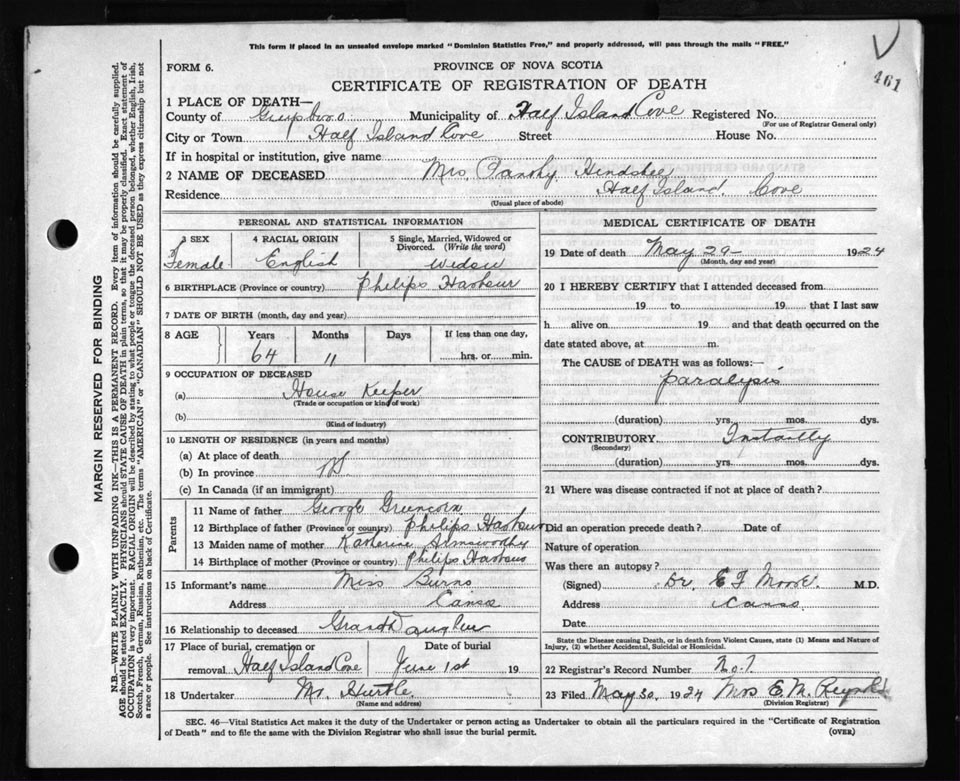 This form if placed in an unsealed envelope marked "Dominion Statistics Free," and properly addressed, will pass through the mails "FREE."
461
FORM 6.
PROVINCE OF NOVA SCOTIA
CERTIFICATE OF REGISTRATION OF DEATH
1 PLACE OF DEATH—
County of Municipality of Half Island Cove Registered No.
(For use of Registrar General only)
City or Town Half Island Cove Street House No.
If in hospital or institution, give name
2 NAME OF DECEASED Mrs.
Residence Half Island Cove
(Usual place of abode)
PERSONAL AND STATISTICAL INFORMATION
3 SEX
Female
4 RACIAL ORIGIN
English
5 Single, Married, Widowed or Divorced. (Write the word)
6 BIRTHPLACE (Province or country) Philips Harbour
7 DATE OF BIRTH (month, day and year)
8 AGE
Years Months Days If less than one day,
64 11 hrs. or min.
9 OCCUPATION OF DECEASED
(a) House Keeper
(Trade or occupation or kind of work)
(b)
(Kind of industry)
10 LENGTH OF RESIDENCE (in years and months)
(a) At place of death
(b) In province
(c) In Canada (if an immigrant)
Parents
11 Name of father George Greencorn
12 Birthplace of father (Province or country) Philips Harbour
13 Maiden name of mother Katherine
14 Birthplace of mother (Province or country) Philips Harbour
15 Informant's name Miss Burns
Address Canso
16 Relationship to deceased Grand Daughter
17 Place of burial, cremation or removal Half Island Cove
Date of burial
June 1st 19
18 Undertaker Mr.
(Name and address)
MEDICAL CERTIFICATE OF DEATH
19 Date of death May 29 1924
(Month, day and year)
20 I HEREBY CERTIFY that I attended deceased from
19 to 19 that I last saw
h alive on 19 and that death occurred on the
date stated above, at m.
The CAUSE of DEATH was as follows:—
paralysis
(duration) yrs. mos. dys.
CONTRIBUTORY Instantly
(Secondary)
(duration) yrs. mos. dys.
21 Where was disease contracted if not at place of death?
Did an operation precede death? Date of
Nature of operation
Was there an autopsy?
(Signed) Dr. E F Moore M.D.
Address Canso
Date
State the Disease causing Death, or in death from Violent Causes, state (1) Means and Nature of
Injury, (2) whether Accidental, Suicidal or Homicidal.
22 Registrar's Record Number No. 7
23 Filed May 30 1924 Mrs E. M.
(Division Registrar)
SEC. 46—Vital Statistics Act makes it the duty of the Undertaker or person acting as Undertaker to obtain all the particulars required in the "Certificate of Registration
of Death" and to file the same with the Division Registrar who shall issue the burial permit.
(OVER)
MARGIN RESERVED FOR BINDING
N.B.—WRITE PLAINLY WITH UNFADING INK—THIS IS A PERMANENT RECORD. Every item of information should be carefully supplied.
AGE should be stated EXACTLY. PHYSICIANS should STATE CAUSE OF DEATH in plain terms, so that it may be properly classified. Exact statement of
OCCUPATION is very important. RACIAL ORIGIN will be described by stating to what people or tongue the deceased person belonged, whether English, Irish,
Scotch, French, German, Russian, Ruthenian, etc. The terms "AMERICAN" or "CANADIAN" SHOULD NOT BE USED as they express citizenship but not
a race or people. See instructions on back of Certificate.